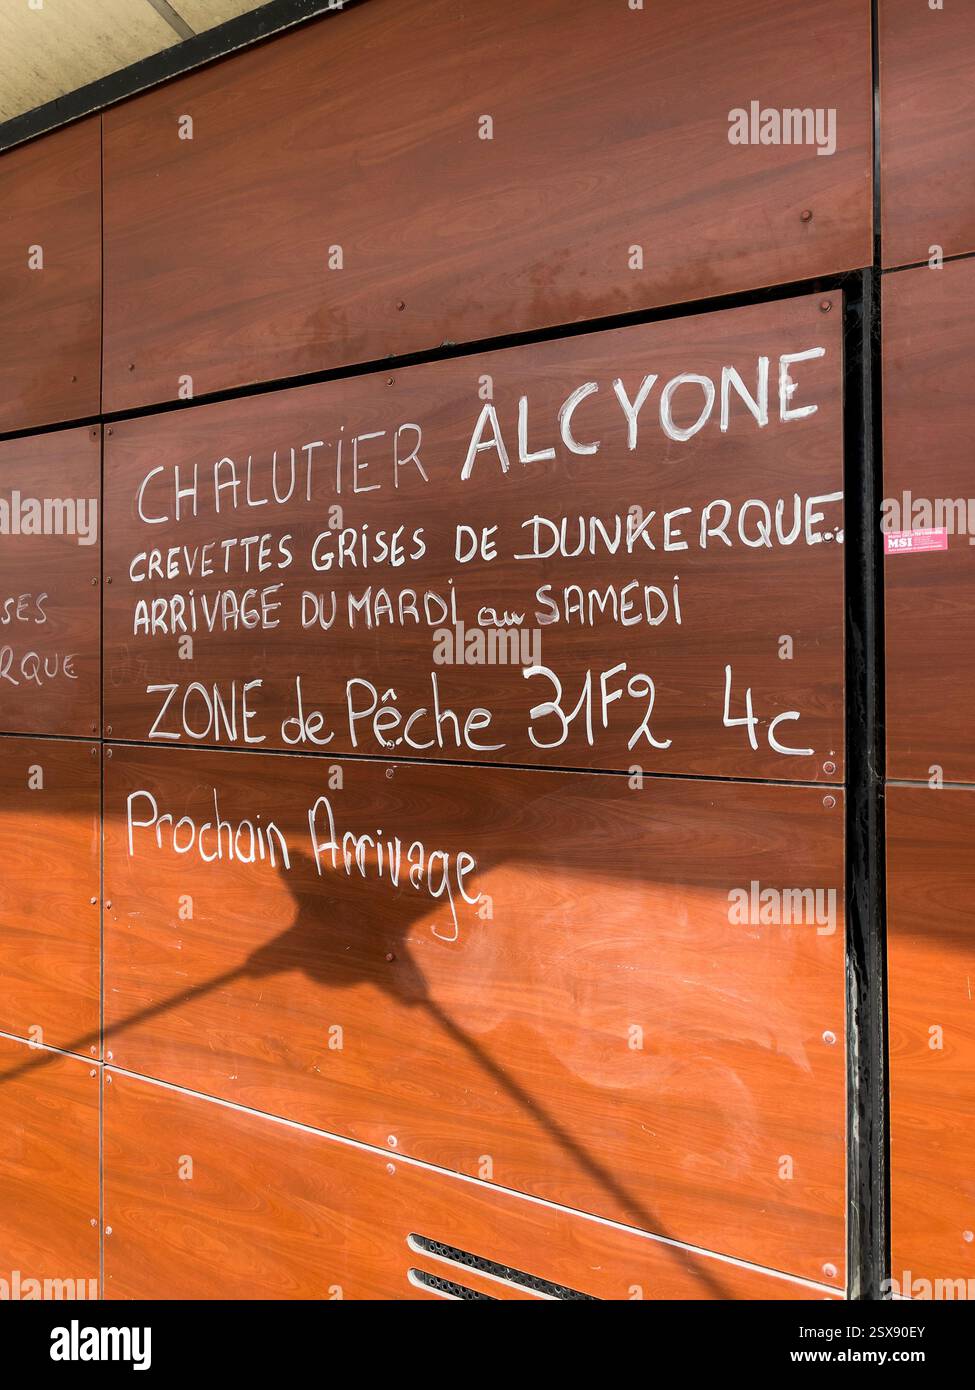 CHALUTIER ALCYONE
CREVETTES GRISES DE DUNKERQUE.
ARRIVAGE DU MARDI au SAMEDI
ZONE de Pêche 31F2 4c
Prochain Arrivage
SES
RQUE
MSI
alamy
Image ID: 2SX90EY
www.alamy.com